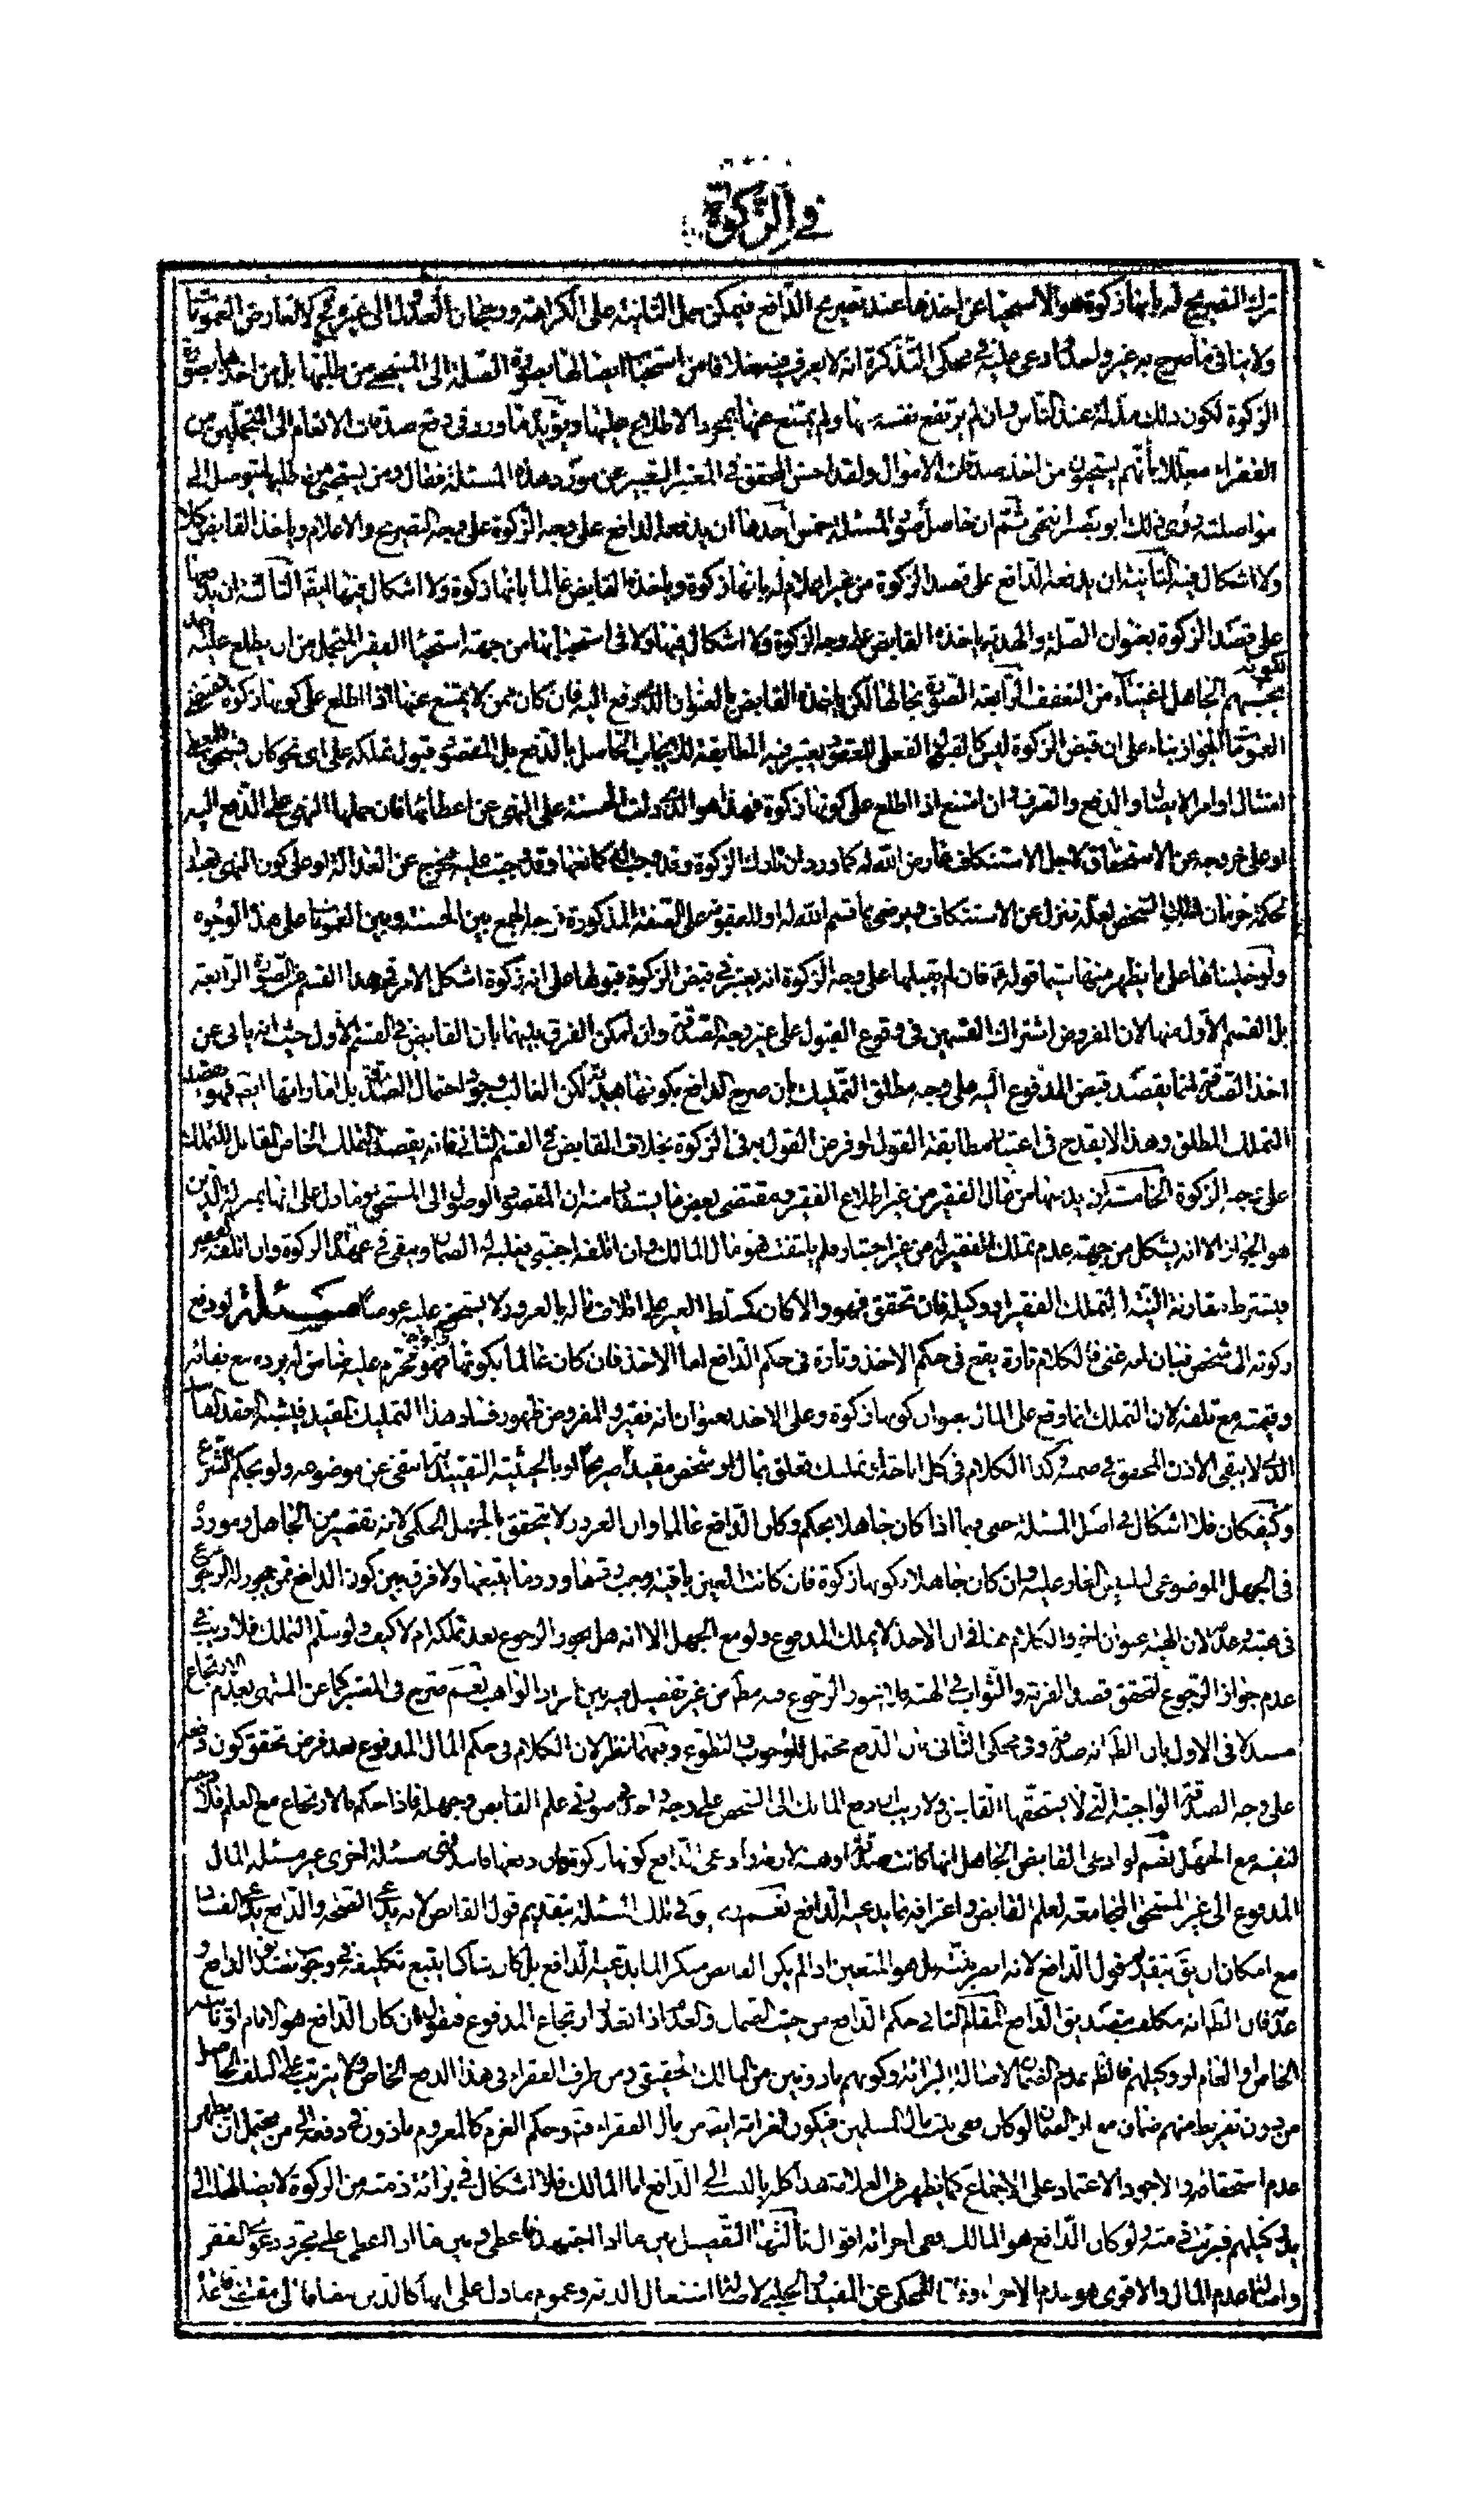 في الزكوة
ترك التصريح له بانها زكوة هو الاستحياء عن اخذها عند تصريح الدافع فيمكن حمل الثانية على الكراهة
ولا ينافي ما صرح به غير واحد بل ادعى عليه في محكي التذكرة انه لا يعرف فيه خلافا من استحباب ايصالها بصورة الصلة الى المستحيي من طلبها بل من اخذها بصورة
الزكوة لكون ذلك مذلة عند الناس وان لم يرتفع نفسه بها ولم يمتنع عنها بمجرد الاطلاع عليها ويؤيده ما ورد في دفع صدقات الانعام الى المتجملين من
الفقراء معللا بأنهم يستحيون من اخذ صدقات الاموال ولقد احسن المحقق في المعتبر التعبير عن مورد هذه المسئلة فقال ومن يستحيى من طلبها يتوصل الى
مواصلته روى ذلك ابو بصير انتهى ثم ان حاصل صور المسئلة خمس احدها ان يدفعه الدافع على وجه الزكوة على وجه التصريح والاعلام وياخذ القابض كك
ولا اشكال فيه الثانية ان يدفعه الدافع على قصد الزكوة من غير اعلام له بانها زكوة وياخذه القابض عالما بانها زكوة ولا اشكال فيها ايضا الثالثة ان يدفعها
على قصد الزكوة بعنوان الصلة والهدية وياخذه القابض على وجه الزكوة ولا اشكال فيها ولا في استحبابها من جهة استحياء الفقير المتجمل من ان يطلع عليه
يحسبهم الجاهل اغنياء من التعفف الرابعة الصورة بحالها لكن ياخذه القابض بالعنوان الذي دفع اليه فان كان ممن لا يمتنع عنها اذا اطلع على كونها زكوة فمقتضى
العمومات الجواز بناء على ان قبض الزكوة ليس كالقبول الفعلي للعقود يعتبر فيه المطابقة للايجاب الحاصل بالدفع بل المقصود قبول تملكه على اى نحو كان
امتثال اوامر الايتاء والدفع والغرض وان امتنع اذا اطلع على كونها زكوة فهذا هو الذي دلت الحسنة على النهي عن اعطائها فان حملنا النهي على الدفع اليه
او على خروجه عن الاستحقاق لاجل الاستنكاف عما فرض الله له كما ورد ان تارك الزكوة وقد وجبت له كمانعها وقد وجبت عليه فيخرج عن العدالة او على كون النهي تعبدا
لحكمة حرمان ذلك الشخص لعله يتنزل عن الاستنكاف فيرضى بما قسم الله له او للعقوبة على الصفة المذكورة وجه الجمع بين الحسنة وبين العمومات على هذه الوجوه
ولو خليناها على ما يظهر منها سيما قوله ع فان لم يقبلها على وجه الزكوة انه يعتبر في قبض الزكوة قبولها على انه زكوة اشكل الامر في هذا القسم من الصورة الرابعة
بل القسم الاول منها لان المفروض اشتراك القسمين في وقوع القبول على غير وجه الصدقة وان امكن الفرق بينهما بان القابض في القسم الاول حيث انه يابى عن
اخذ الصدقة انما يقصد قبض المدفوع اليه على وجه مطلق التمليك وان صرح الدافع بكونها هبة لكن الغالب وجود احتمال الصدقة بل اماراتها ايضا فهو يقصد
التملك المطلق وهذا لا يقدح في اعتبار مطابقة القبول لو فرض القول به في الزكوة بخلاف القابض في القسم الثاني فانه يقصد التملك الخاص المقابل للتملك
على وجه الزكوة الخامسة ان يدسها من مال الفقير من غير اطلاع الفقير ومقتضى بعض ما يستفاد منه ان المقصود الوصول الى المستحق وما دل على انها بمنزلة الدين
هو الجواز الا انه يشكل من جهة عدم تملك الفقير له من غير اختيار فلم يلتفت فهو مال المالك وان اتلفه اجنبي فعليه له الضمان ويبقى في عهدته الزكوة وان اتلفه الفقير
فيشترط مقارنة النية لتملك الفقير او وكيله فان تحقق فهو والا كان كمسلط الغير على اتلاف ماله بالغرور لا يستحق عليه عوضا مسئلة لو دفع
زكوته الى شخص فبان انه غني فالكلام تارة يقع في حكم الاخذ وتارة في حكم الدافع اما الاخذ فان كان عالما بكونها زكوة فهو محرم عليه ضامن له يرده مع بقائه
وقيمته مع تلفه لان التملك انما وقع على المال بعنوان كونها زكوة وعلى الاخذ بعنوان انه فقير والمفروض ظهور فساد هذا التمليك المقيد
الذي لا يبقى الاذن المحقق في ضمنه وكذا الكلام في كل اباحة او تمليك تعلق بمال او شخص مقيدا صريحا او بالحيثية التقييدية بما ينتفي عن موضوعه ولو بحكم الشرع
وكيف كان فلا اشكال في اصل المسئلة حتى فيما اذا كان جاهلا بالحكم وكان الدافع عالما وان الغرور لا يتحقق بالجهل الحكمي لانه تقصير من الجاهل ومورده
في الجهل الموضوعي لتلبيس الغار عليه وان كان جاهلا بكونها زكوة فان كانت العين باقية وجب دفعها ورد ما يتبعها ولا فرق بين كون الدافع ممن يجوز له الرجوع
في هبته وعدمه لان الهبة عنوان اخر والكلام هنا في ان الاخذ لا يملك المدفوع ولو مع الجهل لا انه هل يجوز الرجوع بعد تملكه ام لا كيف ولو سلم التملك فلا ريب في
عدم جواز الرجوع لتحقق قصد القربة والثواب في الهبة فلا يجوز الرجوع فيه مطلقا من غير تفصيل فيه بين افراد الواهب نعم صرح في المعتبر كما عن المنتهى بعدم الارتجاع
مستدلا في الاول بان الظاهر انه صدقة وفي محكي الثاني بان الدفع محتمل للوجوب والتطوع وفيهما نظر لان الكلام في حكم المال المدفوع بعد فرض تحقق كون دفعه
على وجه الصدقة الواجبة التي لا يستحقها القابض ولا ريب ان دفع المالك الى الشخص على وجه واحد في صورتي علم القابض وجهله فاذا حكم بالارتجاع مع العلم فلا
لنفيه مع الجهل نعم لو ادعى القابض الجاهل انها كانت صدقة او هبة لازمة وادعى الدافع كونها زكوة وان دفعها فاسد فهي مسئلة اخرى غير مسئلة المال
المدفوع الى غير المستحق المجامعة لعلم القابض واعترافه بما يدعيه الدافع نعم في تلك المسئلة بتقديم قول القابض لانه يدعي الصحة والدافع يدعي الفساد
مع امكان ان يق بتقديم قول الدافع لانه ابصر بنيته بل هو المتعين اذا لم يكن القابض منكرا لما يدعيه الدافع بل كان شاكا يتبع تكليفه في وجوب تصديق الدافع و
عدمه فان الظاهر انه مكلف بتصديق الدافع المقام الثاني في حكم الدافع من حيث الضمان والعدم اذا تعذر ارتجاع المدفوع فنقول ان كان الدافع هو الامام او نائبه
الخاص او العام او وكيلهم فالظاهر عدم الضمان لاصالة البرائة وكونهم ماذونين من المالك الحقيقي ومن طرف الفقراء في هذا الدفع الخاص فلا يترتب على التلف الحاصل
من دون تفريط منهم ضمان مع ان الضمان لو كان فهي من بيت مال المسلمين فيكون الغرامة ايضا من مال الفقراء
عدم استحقاقه والاجود الاعتماد على الاجماع كما يظهر من العلامة هذا كله بالنسبة الى الدافع اما المالك فلا اشكال في برائة ذمته من الزكوة لايصالها الى
وكيلهم فبرئت ذمته ولو كان الدافع هو المالك ففي اجزائه اقوال ثالثها التفصيل بين ما اذا اجتهد فاعطى وبين ما اذا اعطى على مجرد دعوى الفقر
واصالة عدم المال والاقوى هو عدم الاجزاء وفاقا للمحكي عن المفيد والحلبي لاصالة اشتغال الذمة وعموم ما دل على انها كالدين